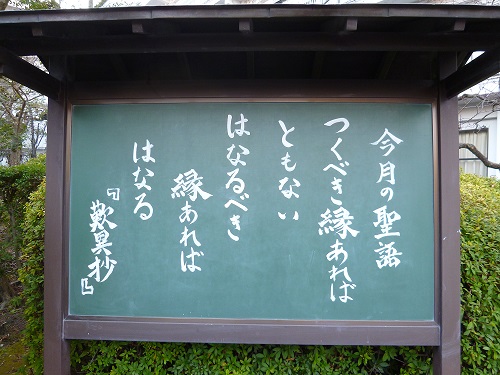 今月の聖語
つくべき縁あれば
ともない
はなるべき
縁あれば
はなる
『歎異抄』